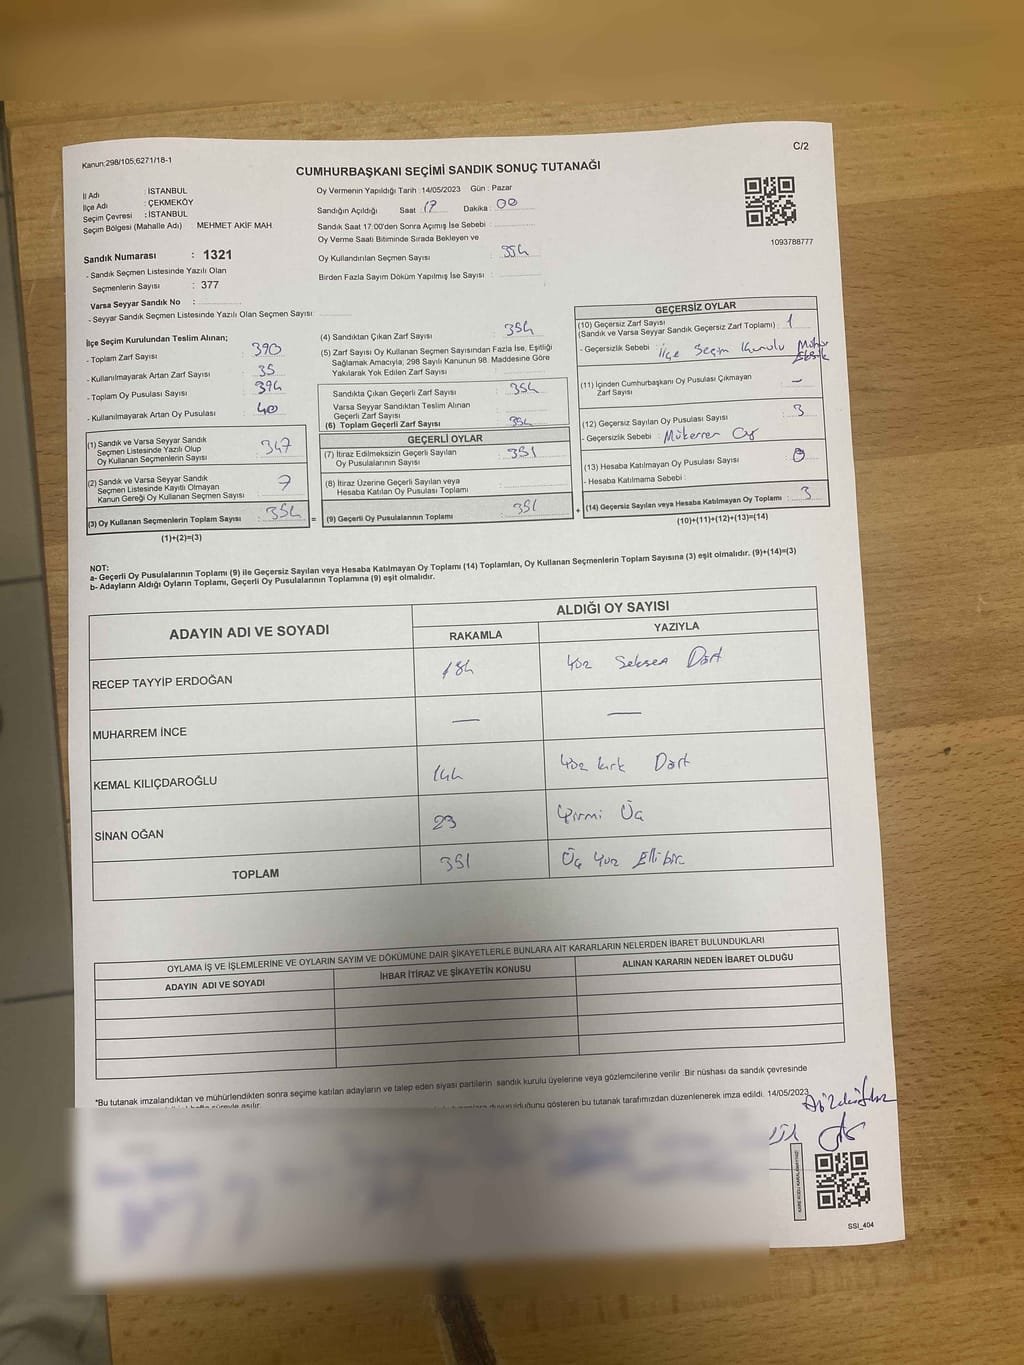 Kanun:298/105,6271/18-1
C/2
CUMHURBAŞKANI SEÇİMİ SANDIK SONUÇ TUTANAĞI
İl Adı : İSTANBUL
İlçe Adı : ÇEKMEKÖY
Seçim Çevresi : İSTANBUL
Seçim Bölgesi (Mahalle Adı) MEHMET AKİF MAH
Sandık Numarası : 1321
- Sandık Seçmen Listesinde Yazılı Olan
Seçmenlerin Sayısı : 377
Varsa Seyyar Sandık No :
- Seyyar Sandık Seçmen Listesinde Yazılı Olan Seçmen Sayısı:
Oy Vermenin Yapıldığı Tarih :14/05/2023 Gün : Pazar
Sandığın Açıldığı Saat : 17 Dakika : 00
Sandık Saat 17:00'den Sonra Açılmış İse Sebebi :
Oy Verme Saati Bitiminde Sırada Bekleyen ve
Oy Kullandırılan Seçmen Sayısı : 354
Birden Fazla Sayım Döküm Yapılmış İse Sayısı :
1093788777
İlçe Seçim Kurulundan Teslim Alınan;
- Toplam Zarf Sayısı : 390
- Kullanılmayarak Artan Zarf Sayısı : 35
- Toplam Oy Pusulası Sayısı : 394
- Kullanılmayarak Artan Oy Pusulası : 40
(1) Sandık ve Varsa Seyyar Sandık
Seçmen Listesinde Yazılı Olup
Oy Kullanan Seçmenlerin Sayısı : 347
(2) Sandık ve Varsa Seyyar Sandık
Seçmen Listesinde Kayıtlı Olmayan
Kanun Gereği Oy Kullanan Seçmen Sayısı : 7
(3) Oy Kullanan Seçmenlerin Toplam Sayısı : 354 =
(1)+(2)=(3)
(4) Sandıktan Çıkan Zarf Sayısı : 354
(5) Zarf Sayısı Oy Kullanan Seçmen Sayısından Fazla İse, Eşitliği
Sağlamak Amacıyla; 298 Sayılı Kanunun 98. Maddesine Göre
Yakılarak Yok Edilen Zarf Sayısı :
Sandıkta Çıkan Geçerli Zarf Sayısı : 354
Varsa Seyyar Sandıktan Teslim Alınan
Geçerli Zarf Sayısı :
(6) Toplam Geçerli Zarf Sayısı : 354
GEÇERLİ OYLAR
(7) İtiraz Edilmeksizin Geçerli Sayılan
Oy Pusulalarının Sayısı : 351
(8) İtiraz Üzerine Geçerli Sayılan veya
Hesaba Katılan Oy Pusulası Toplamı :
(9) Geçerli Oy Pusulalarının Toplamı : 351 +
GEÇERSİZ OYLAR
(10) Geçersiz Zarf Sayısı
(Sandık ve Varsa Seyyar Sandık Geçersiz Zarf Toplamı) : 1
- Geçersizlik Sebebi : İlçe Seçim Kurulu Mühür
Eksik
(11) İçinden Cumhurbaşkanı Oy Pusulası Çıkmayan
Zarf Sayısı : —
(12) Geçersiz Sayılan Oy Pusulası Sayısı : 3
- Geçersizlik Sebebi : Mükerrer Oy
(13) Hesaba Katılmayan Oy Pusulası Sayısı : 0
- Hesaba Katılmama Sebebi :
(14) Geçersiz Sayılan veya Hesaba Katılmayan Oy Toplamı : 3
(10)+(11)+(12)+(13)=(14)
NOT:
a- Geçerli Oy Pusulalarının Toplamı (9) ile Geçersiz Sayılan veya Hesaba Katılmayan Oy Toplamı (14) Toplamları, Oy Kullanan Seçmenlerin Toplam Sayısına (3) eşit olmalıdır. (9)+(14)=(3)
b- Adayların Aldığı Oyların Toplamı, Geçerli Oy Pusulalarının Toplamına (9) eşit olmalıdır.
ADAYIN ADI VE SOYADI
ALDIĞI OY SAYISI
RAKAMLA YAZIYLA
RECEP TAYYİP ERDOĞAN 184 Yüz Seksen Dört
MUHARREM İNCE — —
KEMAL KILIÇDAROĞLU 144 Yüz kırk Dört
SİNAN OĞAN 23 Yirmi Üç
TOPLAM 351 Üç Yüz Ellibir
OYLAMA İŞ VE İŞLEMLERİNE VE OYLARIN SAYIM VE DÖKÜMÜNE DAİR ŞİKAYETLERLE BUNLARA AİT KARARLARIN NELERDEN İBARET BULUNDUKLARI
ADAYIN ADI VE SOYADI İHBAR İTİRAZ VE ŞİKAYETİN KONUSU ALINAN KARARIN NEDEN İBARET OLDUĞU
*Bu tutanak imzalandıktan ve mühürlendikten sonra seçime katılan adayların ve talep eden siyasi partilerin sandık kurulu üyelerine veya gözlemcilerine verilir .Bir nüshası da sandık çevresinde
duyurulduğunu gösteren bu tutanak tarafımızdan düzenlenerek imza edildi. 14/05/2023
SSI_404